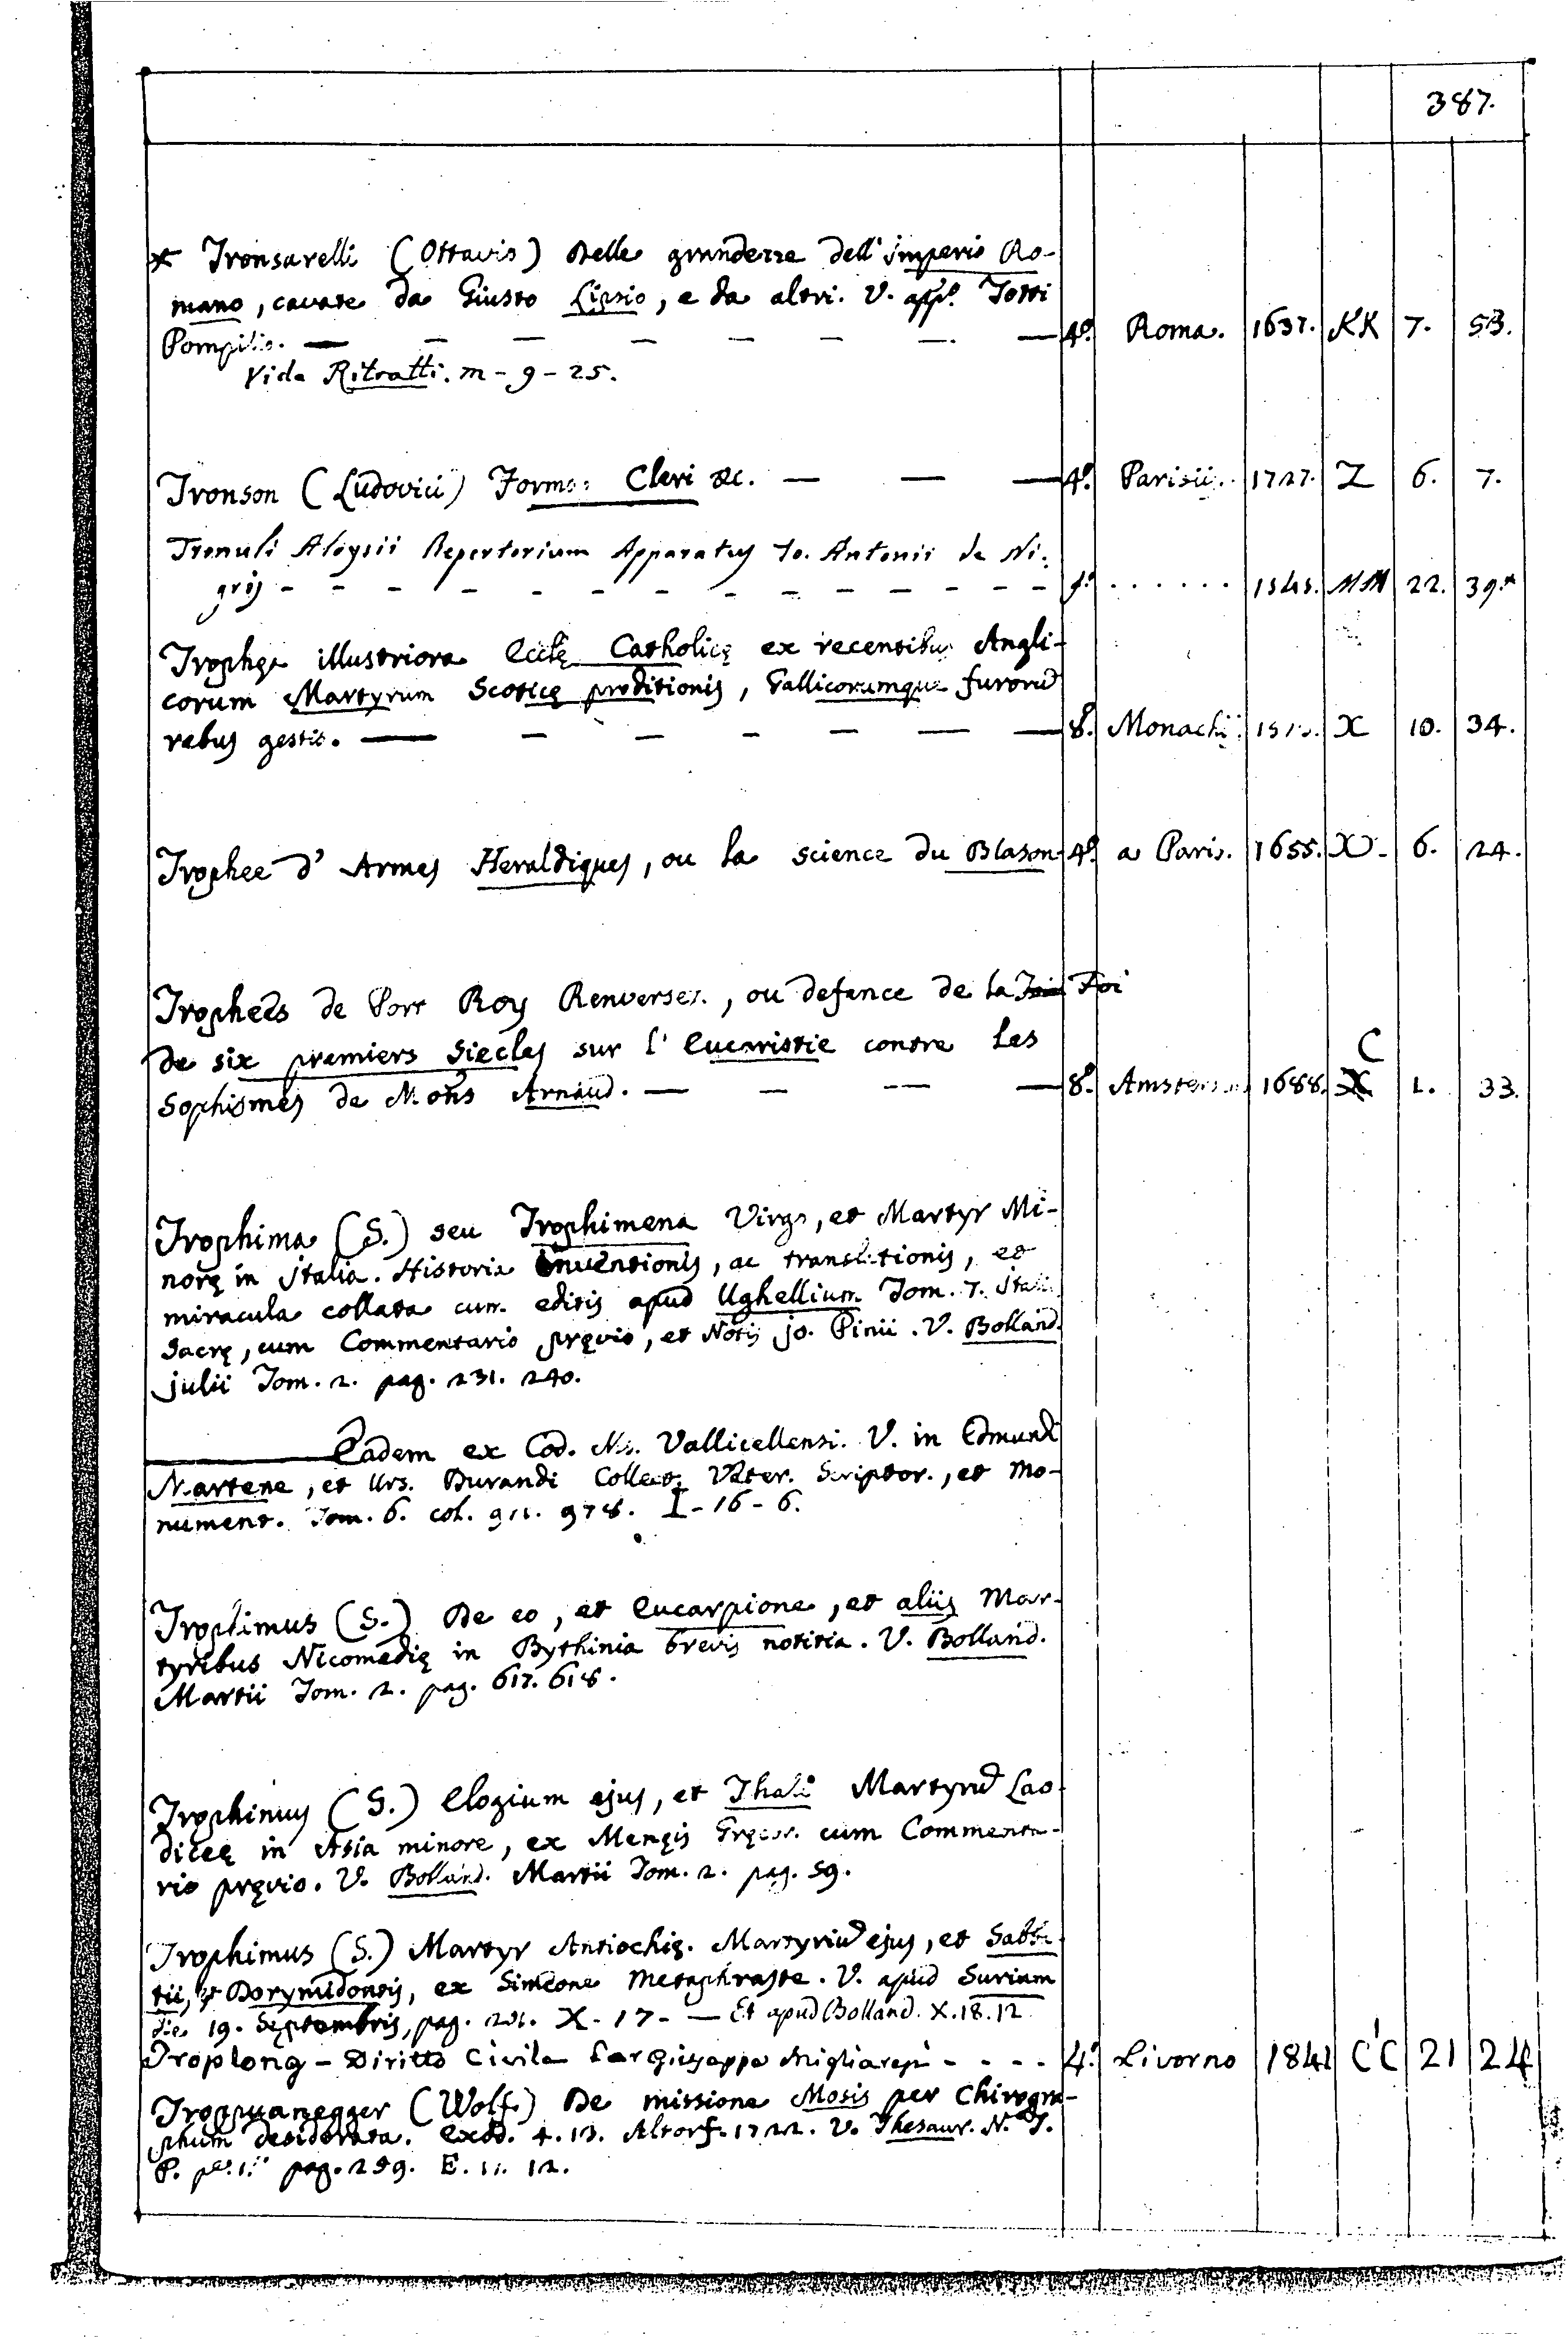 387.
* Tronsarelli (Ottavio) Delle grandezze dell' imperio Ro-
mano, cavate da Giusto Lipsio, e da altri. V. app.º Totti
Pompilio. — — — — — — — — 4.º Roma. 1637. KK 7. 53.
Vide Ritratti. m - 9 - 25.
Tronson (Ludovici) Forma Cleri &c. — — — 4.º Parisii. 1727. Z 6. 7.
Tronuli Aloysii Repertorium Apparatus Jo. Antonii de Ni-
gris - - - - - - - - - - - - . . . . . . 1545. MM 22. 39.*
Trophęa illustriora Eccłę Catholicę ex recentibus Angli-
corum Martyrum Scoticę proditionis, Gallicorumque furorū
rebus gestis. — — — — — — — 8.º Monachii. X 10. 34.
Trophee d' Armes Heraldiques, ou la science du Blason 4.º a Paris. 1655. X. 6. 24.
Trophees de Port Roy Renverser., ou defence de la Foi
de six premiers siecles sur l' Eucaristie contre les C
Sophismes de Mons Arnaud. — — — — 8.º 1688. X 1. 33.
Trophima (S.) seu Trophimena Virgo, et Martyr Mi-
norę in Italia. Historia inventionis, ac translationis, et
miracula collata cum editis apud Ughellium Tom. 7. Italię
Sacrę, cum Commentario pręvio, et Notis jo. Pinii. V. Bolland.
julii Tom. 2. pag. 231. 240.
— Eadem ex Cod. Ms. Vallicellensi. V. in Edmund
Martene, et Urs. Durandi Collect. Veter. Scriptor., et Mo-
nument. Tom. 6. col. 978. I - 16 - 6.
Trophimus (S.) De eo, et Eucarpione, et aliis Mar-
tyribus Nicomedię in Bythinia brevis notitia. V. Bolland.
Martii Tom. 2. pag. 617. 618.
Trophimus (S.) Elogium ejus, et Thali Martyrū Lao-
diceę in Asia minore, ex Menęis Gręcor. cum Commenta-
rio pręvio. V. Bolland. Martii Tom. 2. pag. 59.
Trophimus (S.) Martyr Antiochię. Martyriū ejus, et Sabba-
tii, & Dorymidontis, ex Simeone Metaphraste. V. apud Surium
die 19. Septembris, pag. X. 17. — Et apud Bolland. X. 18. 12.
Troplong - Diritto Civile Giuseppe - - - - 4.º Livorno 1841 C'C 21 24
(Wolf.) De missione Mosis per Chirogra-
phum desiderata. Exod. 4. 13. Altorf. 1722. V. Thesaur. N. T.
P. pag. 259. E. 11. 12.